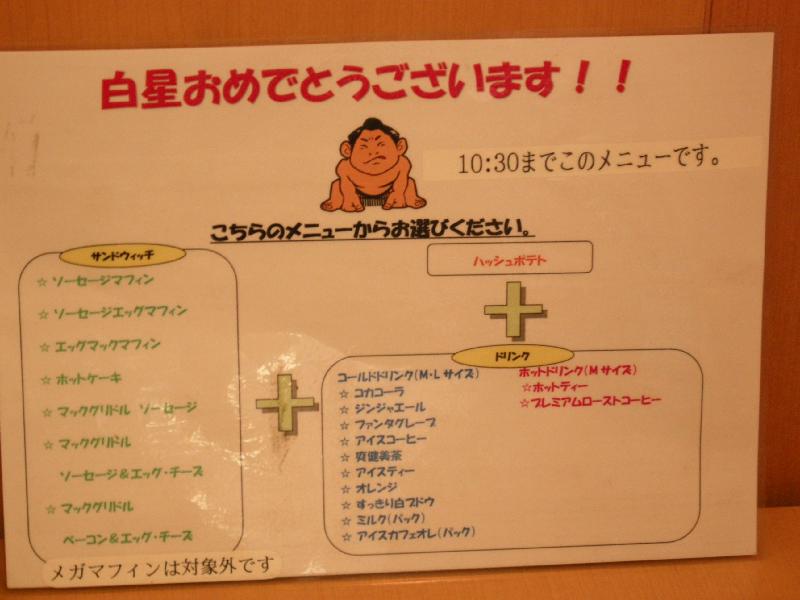 白星おめでとうございます！！
10:30までこのメニューです。
こちらのメニューからお選びください。
サンドウィッチ
☆ ソーセージマフィン
☆ ソーセージエッグマフィン
☆ エッグマックマフィン
☆ ホットケーキ
☆ マックグリドル ソーセージ
☆ マックグリドル
ソーセージ＆エッグ・チーズ
☆ マックグリドル
ベーコン＆エッグ・チーズ
メガマフィンは対象外です
ハッシュポテト
ドリンク
コールドドリンク(M・Lサイズ)
☆ コカコーラ
☆ ジンジャエール
☆ ファンタグレープ
☆ アイスコーヒー
☆ 爽健美茶
☆ アイスティー
☆ オレンジ
☆ すっきり白ブドウ
☆ ミルク(パック)
☆ アイスカフェオレ(パック)
ホットドリンク(Mサイズ)
☆ホットティー
☆プレミアムローストコーヒー